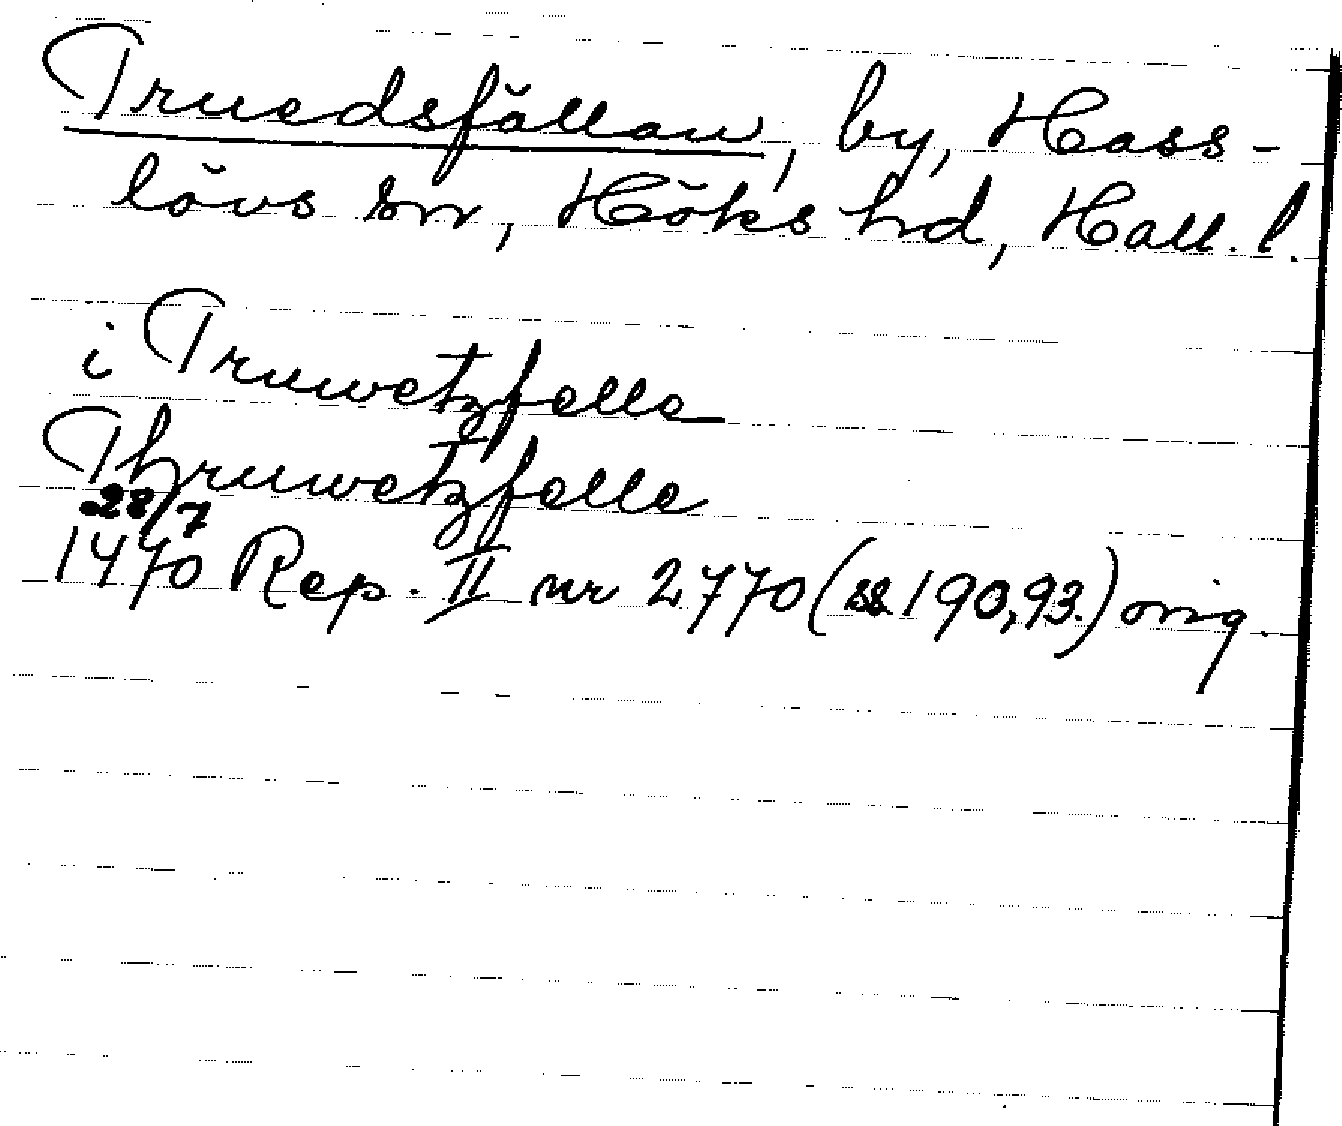 Truedsfällan, by, Hass-
lövs sn, Höks hd, Hall. l.
i Truwetzfelle
Thruwetzfelle
28/7
1470 Rep. II nr 2770 (ss. 190, 93.) orig.